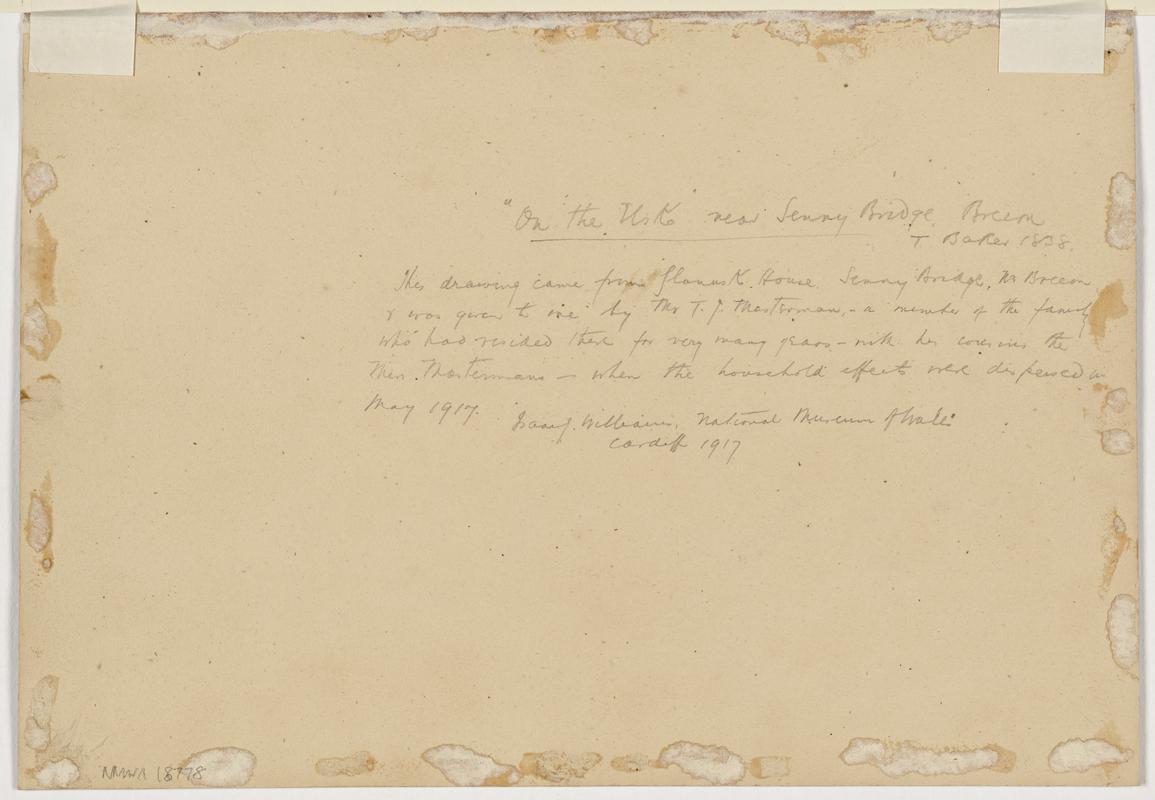 "On the Usk" near Senny Bridge Brecon
T Baker 1838.
This drawing came from Glanusk House Senny Bridge, Nr Brecon
& was given to me by Mr T. J. Masterman, - a member of the family
who had resided there for very many years - with his cousins the
Mastermans — when the household effects were dispersed in
May 1917.
Isaac J. Williams, National Museum of Wales
Cardiff 1917
NMWA 18778